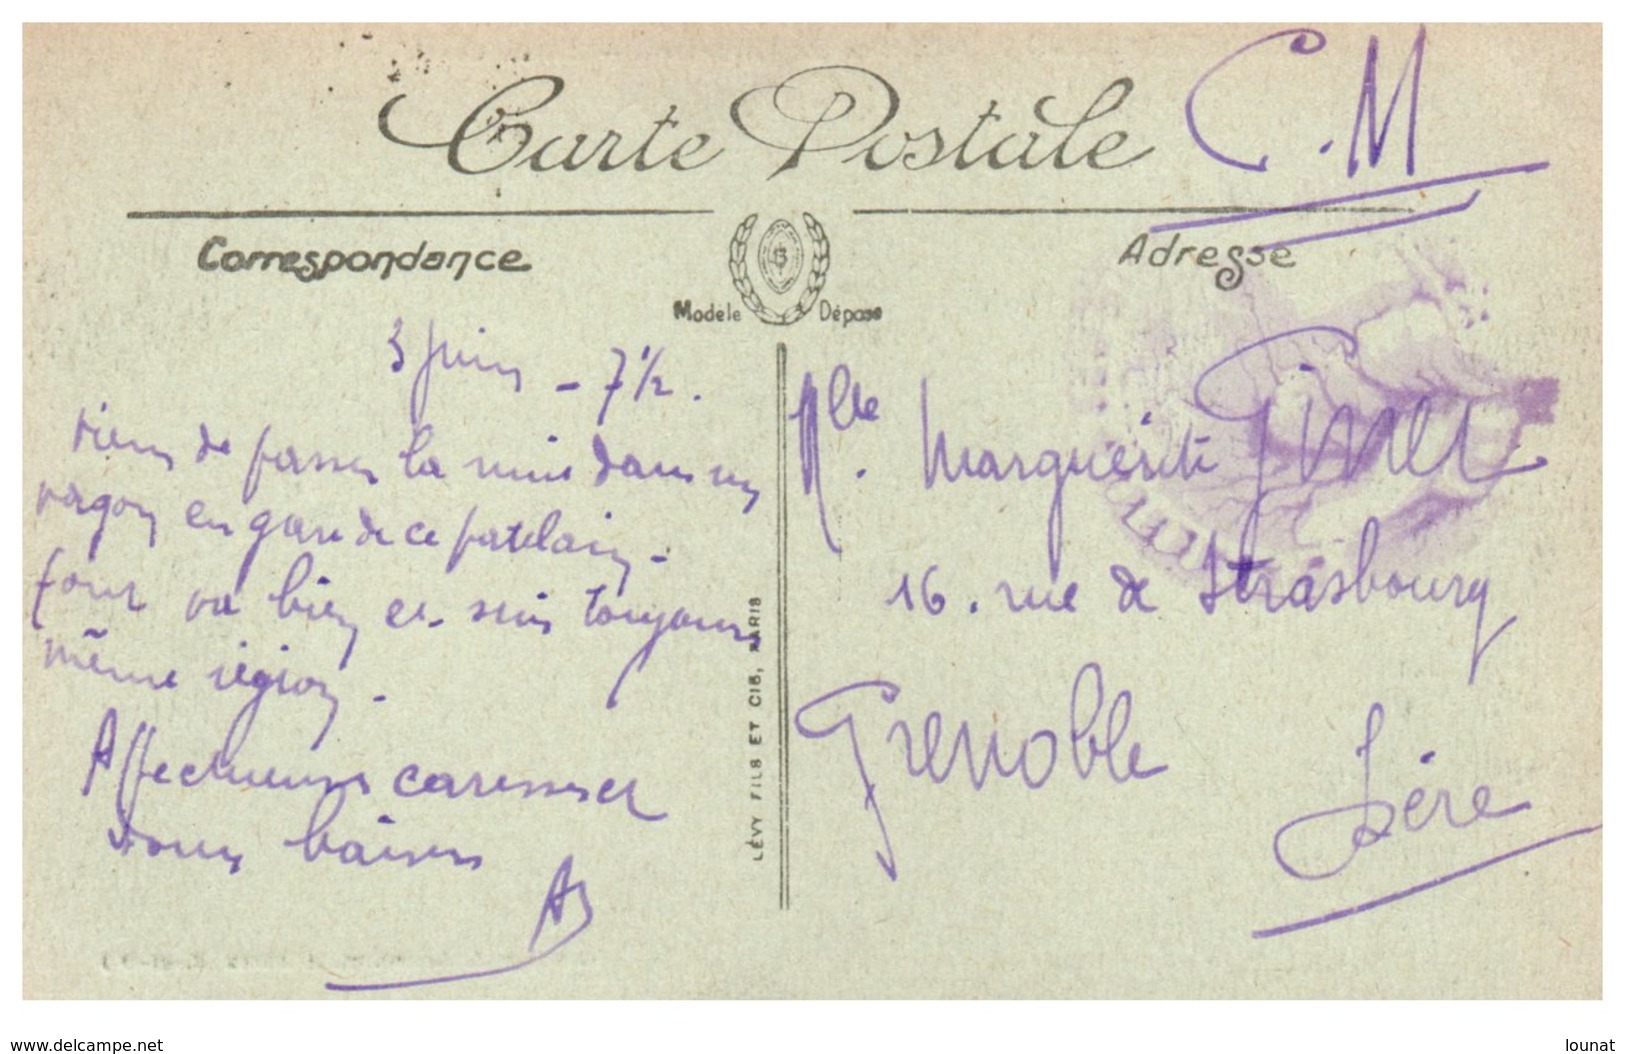 C.M
Carte Postale
Correspondance
Adresse
Modèle Déposé
3 juin - 7 1/2.
viens de passer la nuit dans un
vagon en gare de ce patelain -
tout va bien et suis toujours
même région -
Affectueuses caresses et
doux baisers
AB
LÉVY FILS ET CIE, PARIS
Mlle. Marguerite
16. rue de Strasbourg
Grenoble
Isère
www.delcampe.net
lounat